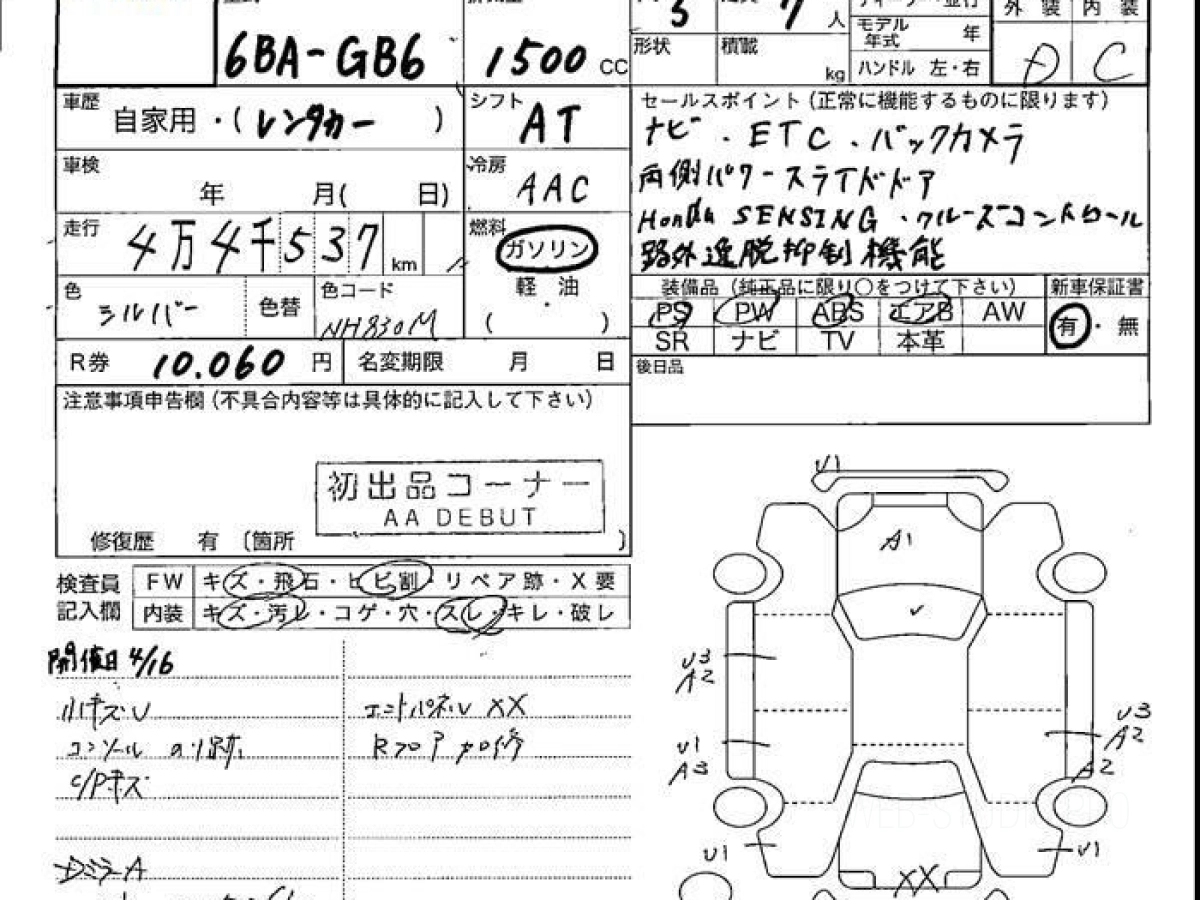 5 7 人 外 装 内 装
モデル
年式 年
6BA-GB6 1500 CC 形状 積載 kg ハンドル 左・右 D C
車歴 自家用・(レンタカー) シフト AT
セールスポイント(正常に機能するものに限ります)
ナビ . ETC . バックカメラ
車検 年 月( 日) 冷房 AAC
両側パワースライドドア
Honda SENSING . クルーズコントロール
走行 4万4千537 km 燃料 ガソリン
路外逸脱抑制機能
軽・油
( )
色 シルバー 色替 色コード NH830M
装備品(純正品に限り○をつけて下さい) 新車保証書
PS PW ABS エアB AW 有・無
SR ナビ TV 本革
R券 10.060 円 名変期限 月 日
後日品
注意事項申告欄(不具合内容等は具体的に記入して下さい)
初出品コーナー
AA DEBUT
修復歴 有 〔箇所 〕
検査員 FW キズ・飛石・ヒビ割・リペア跡・X要
記入欄 内装 キズ・汚レ・コゲ・穴・スレ・キレ・破レ
開催日 4/16
小キズU
エンドパネル XX
コンソール
Rフロア
C/Pキズ
ミラーA
U1
A1
U3
A2
U1
A3
U3
A2
A2
U1
U1
XX